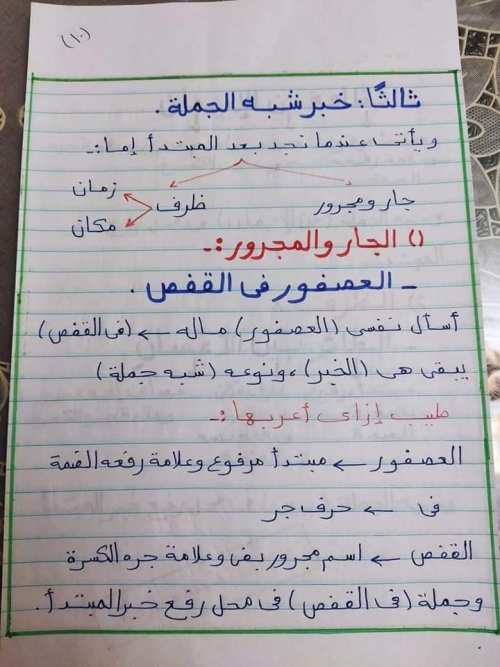 (١٠)
ثالثًا: خبر شبه الجملة.
ويأتى عندما نجد بعد المبتدأ إما:-
جار ومجرور ظرف زمان
مكان
١) الجار والمجرور:-
- العصفور فى القفص.
أسأل نفسى (العصفور) ماله ← (فى القفص)
يبقى هى (الخبر)، ونوعه (شبه جملة)
طيب إزاى أعربها:-
العصفور ← مبتدأ مرفوع وعلامة رفعه الضمة
فى ← حرف جر
القفص ← اسم مجرور بفى وعلامة جره الكسرة
وجملة (فى القفص) فى محل رفع خبر المبتدأ.